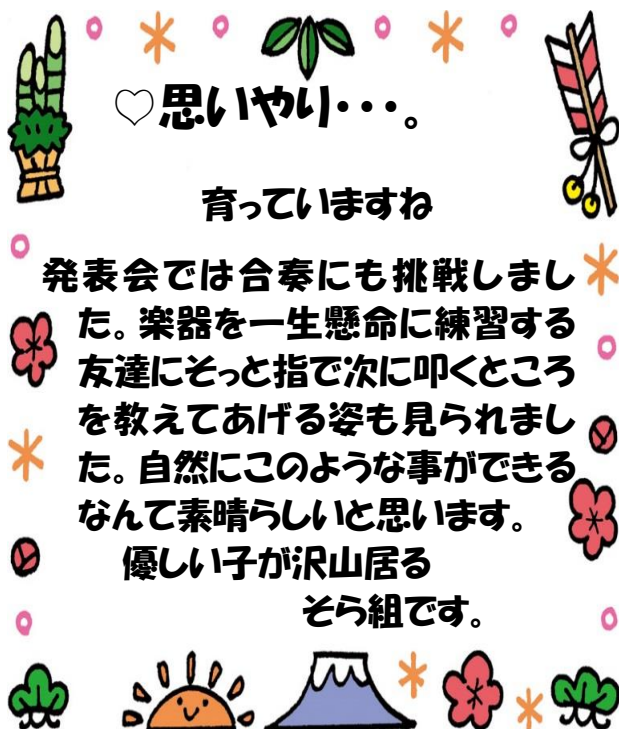 ♡思いやり・・・。
育っていますね
発表会では合奏にも挑戦しまし
た。楽器を一生懸命に練習する
友達にそっと指で次に叩くところ
を教えてあげる姿も見られまし
た。自然にこのような事ができる
なんて素晴らしいと思います。
優しい子が沢山居る
そら組です。